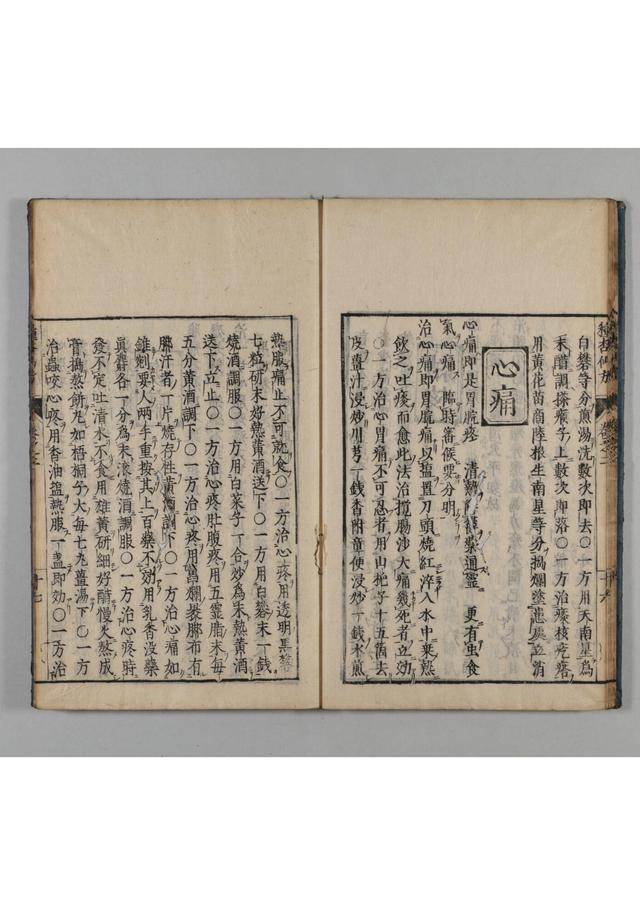 白礬等分煎湯洗數次即去○一方用天南星爲
末醋調搽瘊子上數次即落○一方治瘰核疙瘩
用黃花苗商陸根生南星等分搗爛塗患處立消
心痛
心痛即是胃脘疼 清熱 藥通靈 更有虫食
氣心痛 臨時審候要分明
治心痛即胃脘痛以鹽置刀頭燒紅淬入水中乘熱
飲之吐痰而愈此法治攪腸沙大痛幾死者立効
○一方治心胃痛不可忍者用山梔子十五箇去
皮薑汁浸炒川芎一錢香附童便浸炒一錢水煎
熱服痛止不可就食○一方治心疼用透明黑
七粒研末好熱黃酒送下○一方用白礬末一錢
燒酒調服○一方用白菜子一合炒爲末熱黃酒
送下立止○一方治心疼肚腹疼用五靈脂末每
五分黃酒調下○一方治心疼用舊爛裹脚布有
脚汗者一片燒存性黃酒調下○一方治心痛如
錐剜要人兩手重按其上百藥不効用乳香沒藥
眞麝各一分爲末滾燒酒調服○一方治心疼時
發不定吐清水不食用雄黃研細好醋慢火熬成
膏搗蒸餅丸如梧桐子大每七丸薑湯下○一方
治蟲咬心疼用香油塩熱服一盞即効○一方治